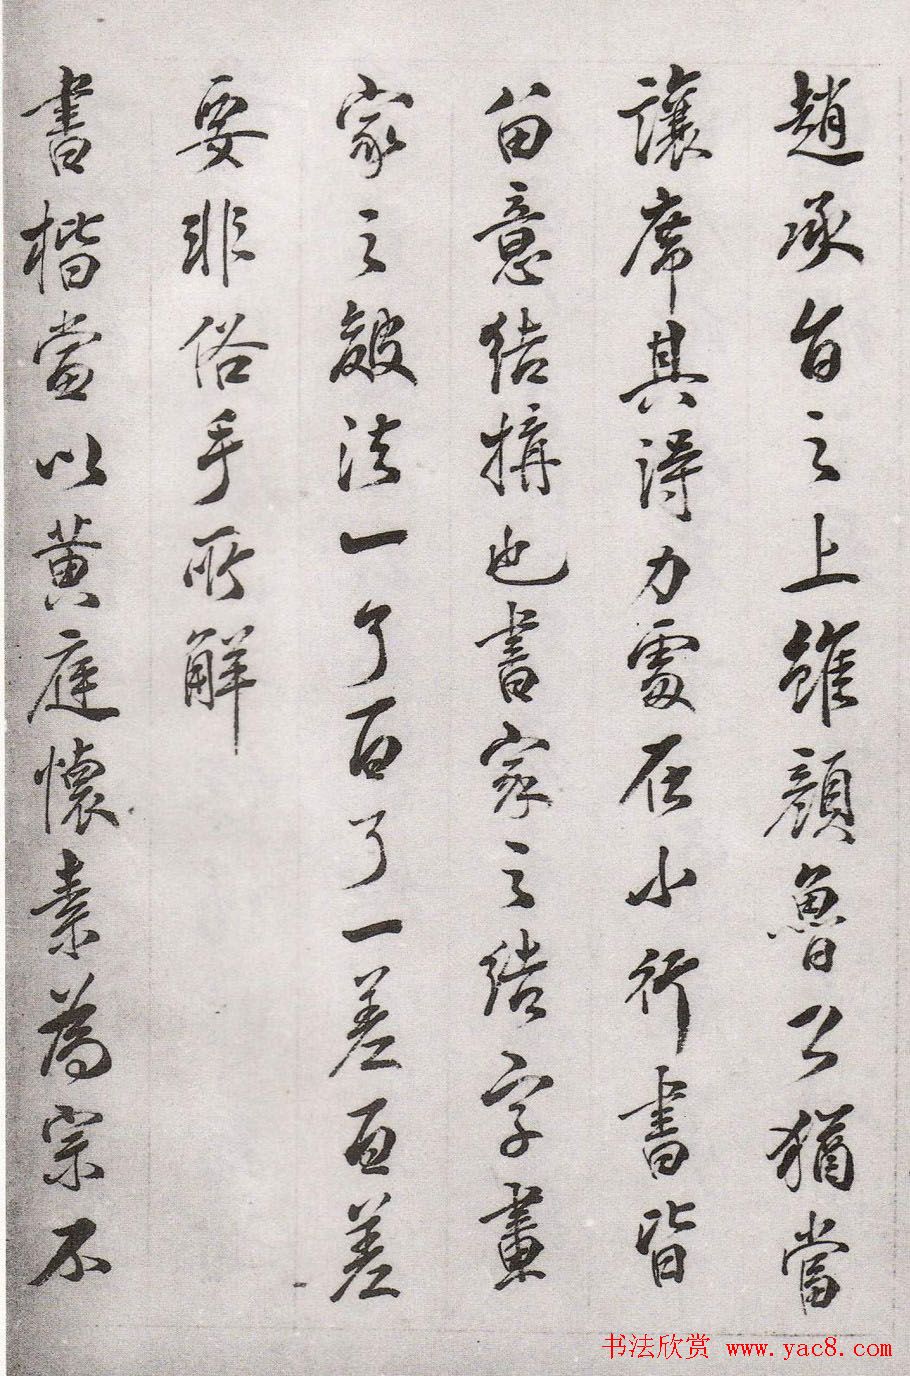 趙承旨之上雖顏魯公猶當
讓席其得力處在小行書皆
留意結搆也書家之結字畫
家之皴法一了百了一差百差
要非俗手所解
書楷當以黃庭懷素為宗不
书法欣赏 www.yac8.com